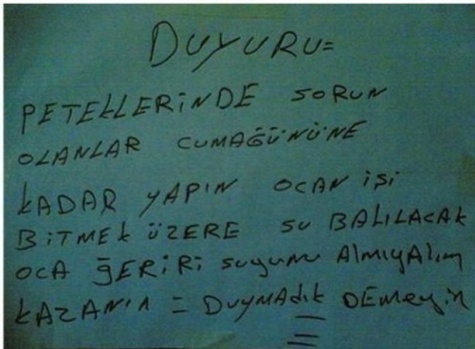 DUYURU=
PETEKLERİNDE SORUN
OLANLAR CUMAĞÜNÜNE
KADAR YAPIN OCAN İŞİ
BİTMEK ÜZERE SU BALILACAK
OCA ĞERİRİ SUYUNU ALMIYALIM
KAZANIN = DUYMADIK DEMEYİN